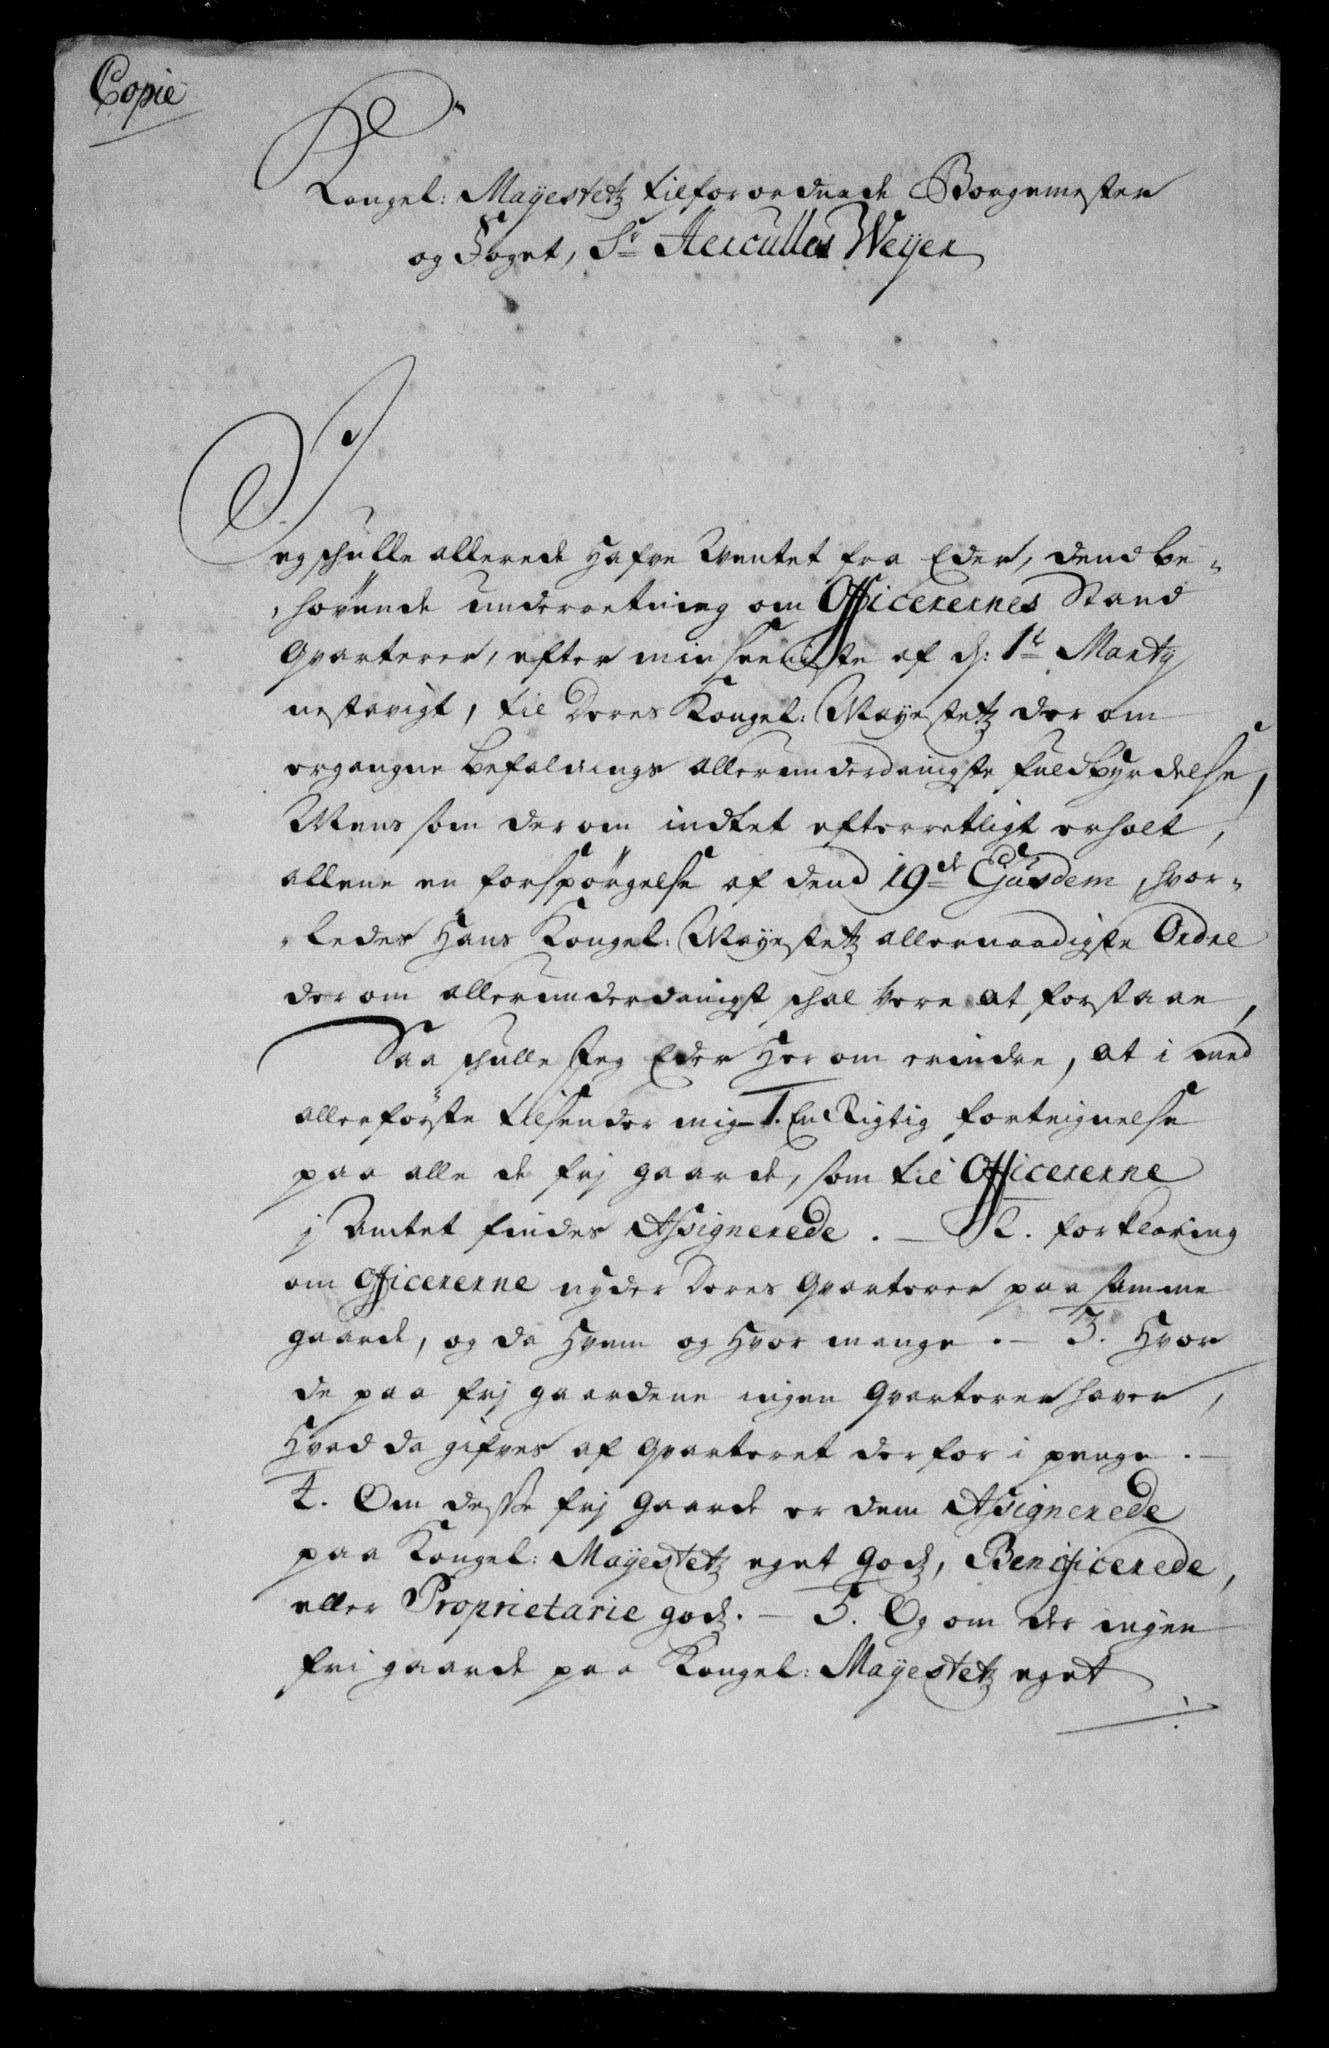 Copie
Kongel: Mayestetz tilforordnede Borgemester
og Foget, Sr Hercules Weyer
Jeg schulle allerede hafve Ventet fra Eder, dend be-
-hövende underretning om Officerernes Stand
Qvarterer, efter min seeniste af d: 1t Marty
nestavigt, til Deres Kongel: Mayestetz der om
ergangne befalnings allerunderdanigste fuldbyrdelse,
Mens som der om indtet efterretligt erholt,
allene en forspörgelse af dend 19de Ejusdem, hvor-
-ledes Hans Kongel: Mayestetz allernaadigste Ordre
der om allerunderdanigst schal vere at forstaae,
Saa schulle Jeg Eder her om erindre, at i med
allerförste tilsender mig 1. En Rigtig forteignelse
paa alle de frj gaarde, som til Officererne
j Amtet findes Assignerede. — 2. forklaring
om Officererne nyder Deres Qvarterer paa samme
gaarde, og da Hvem og Hvor mange. — 3. Hvor
de paa frj gaardene ingen Qvarterer haver,
Hvad da gifves af Qvarteret derfor i penge. —
4. Om desse frj Gaarde er dem Assignerede
paa Kongel: Mayestetz eget Godz, Benificerede,
eller Proprietarie godz. — 5. Og om der ingen
fri gaarde paa Kongel: Mayestetz eget